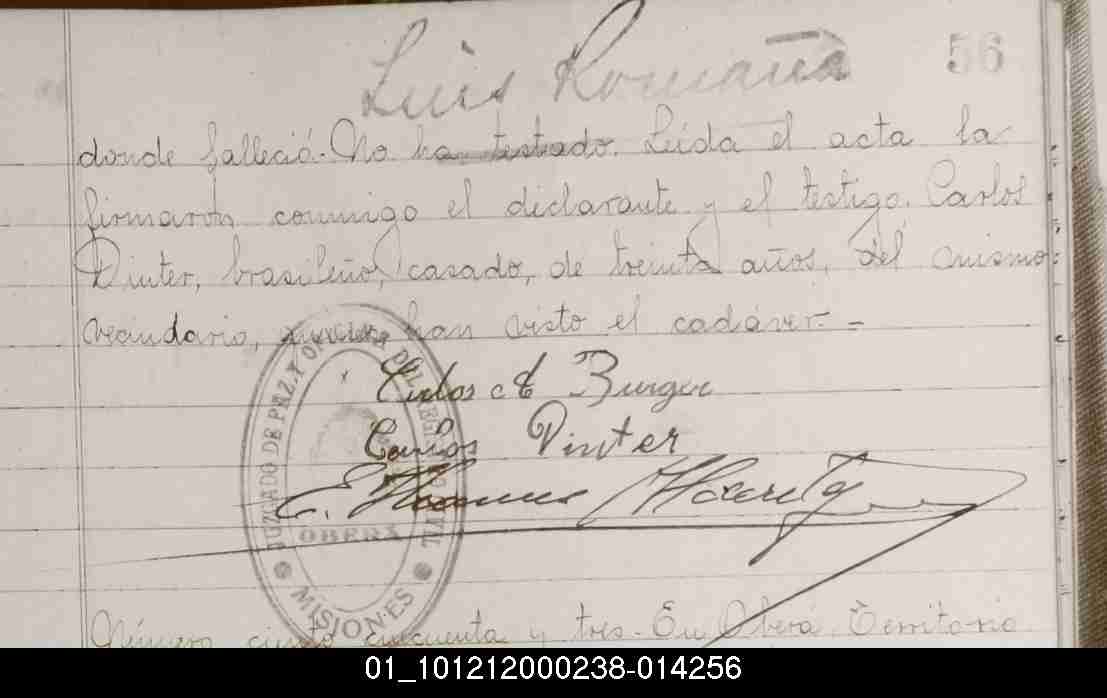 Luis Romaña
56
donde falleció. No ha testado. Leída el acta la
firmaron conmigo el declarante y el testigo Carlos
Pinter, brasileño, casado, de treinta años, del mismo
vecindario, quienes han visto el cadáver.=
Carlos A Burger
Carlos Pinter
E.
JUZGADO DE PAZ Y OFICINA DEL REGISTRO
OBERÁ
MISIONES
Número ciento cincuenta y tres. En Oberá, Territorio
01_101212000238-014256